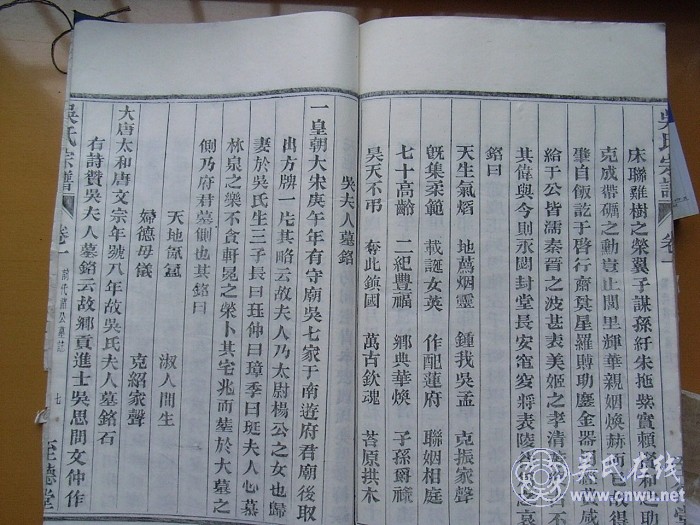 吳氏宗譜
卷一
床聯雞樹之榮翼子謀孫紆朱拖紫實賴
克成帶礪之勳豈止閭里輝華親姻煥赫而已哉
肇自飯訖于啓行齋
給于公皆濡秦晉之波甚表美姬之孝清
其偉與今則永閟封堂長安窀穸將表陵
銘曰
天生氣熖 地蔫烟靈 鍾我吳孟 克振家聲
旣集柔範 載誕女英 作配蓮府 聯姻相庭
七十高齡 二紀豐福 鄉典華煥 子孫爵祿
昊天不弔 奪此鎮國 萬古欽魂 苔原拱木
吳夫人墓銘
一皇朝大宋庚午年有守廟吳七家于南遊府君廟後取
出方牌一片其略云故夫人乃太尉楊公之女也歸
妻於吳氏生三子長曰珏仲曰璋季曰珽夫人心慕
林泉之樂不貪軒冕之榮卜其宅兆而墓於大墓之
側乃府君墓側也其銘曰
天地氤氳 淑人間生
婦德母儀 克紹家聲
大唐太和唐文宗年號八年故吳氏夫人墓銘石
右詩贊吳夫人墓銘云故鄉貢進士吳思間文仲作
吳氏宗譜
卷一
前代諸公墓誌
七
至德堂
吴氏在线
www.cnwu.net